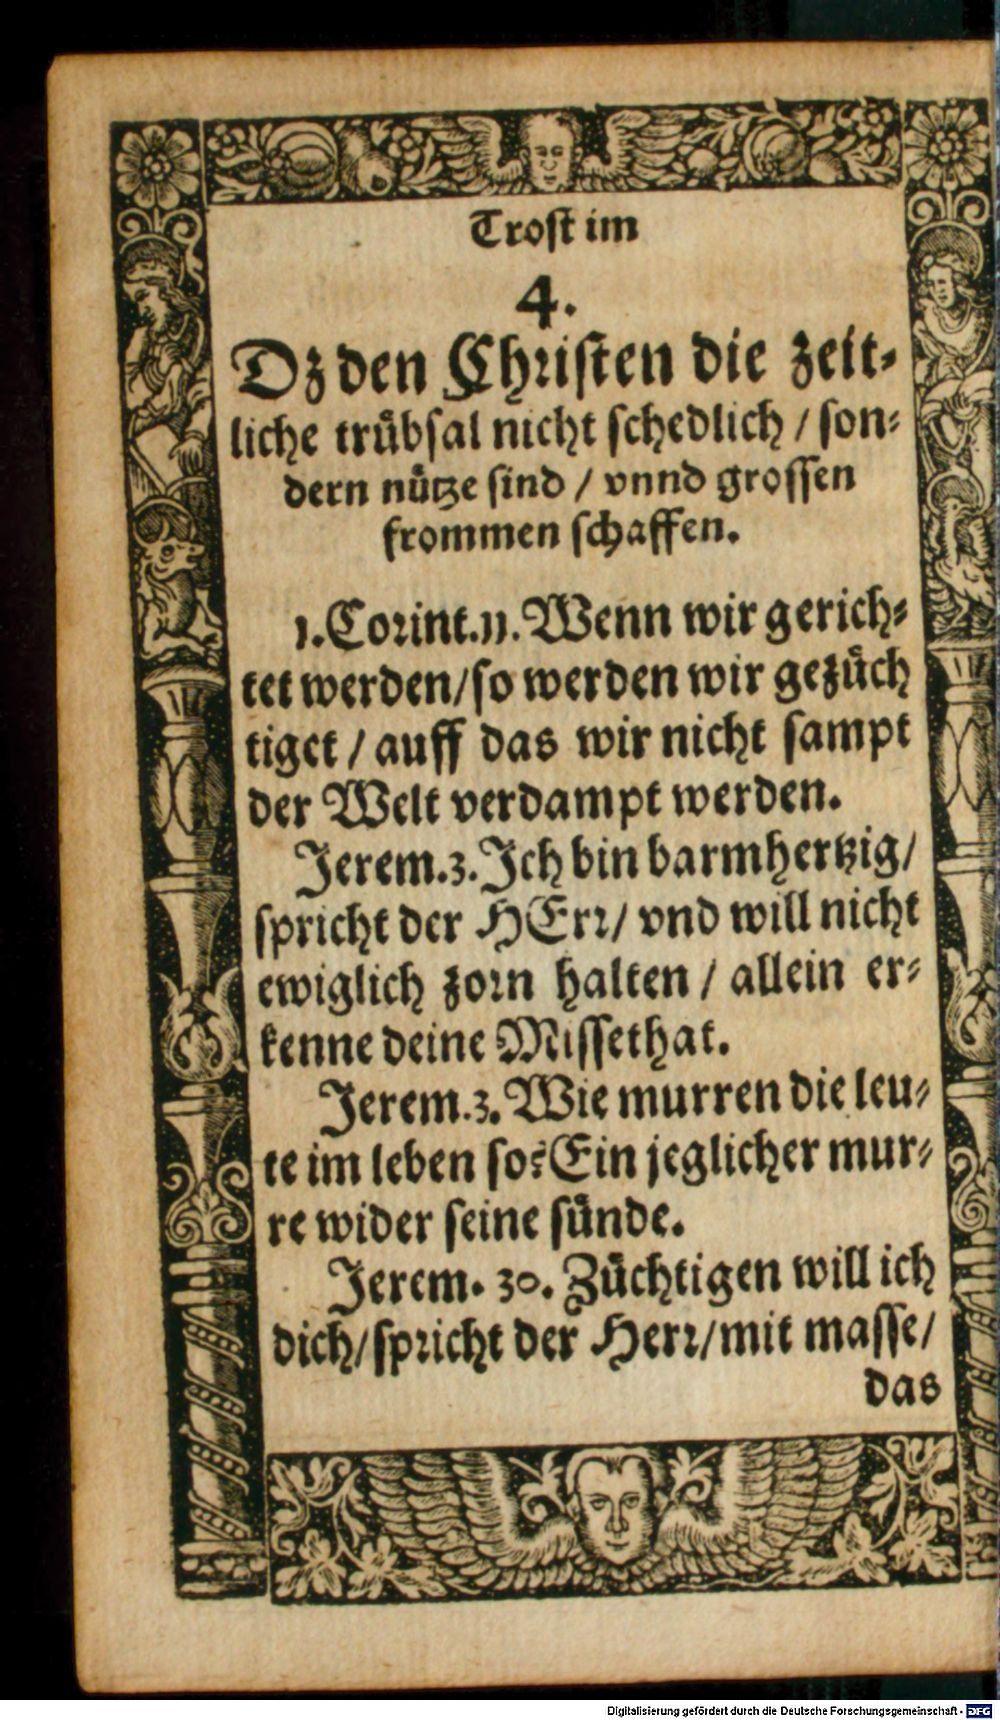 Trost im
4.
Dz den Christen die zeit-
liche truͤbsal nicht schedlich / son-
dern nuͤtze sind / vnnd grossen
frommen schaffen.
1. Corint. 11. Wenn wir gerich-
tet werden/ so werden wir gezuͤch
tiget / auff das wir nicht sampt
der Welt verdampt werden.
Jerem. 3. Ich bin barmhertzig/
spricht der HErr/ vnd will nicht
ewiglich zorn halten / allein er-
kenne deine Missethat.
Jerem. 3. Wie murren die leu-
te im leben so? Ein jeglicher mur-
re wider seine suͤnde.
Jerem. 30. Zuͤchtigen will ich
dich/ spricht der Herr/ mit masse/
das
Digitalisierung gefördert durch die Deutsche Forschungsgemeinschaft - DFG